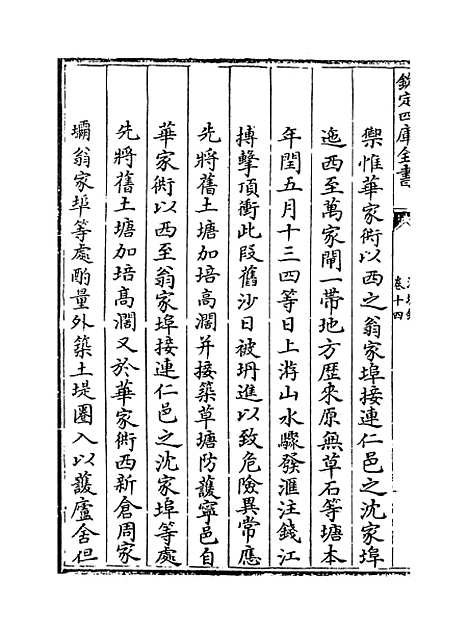 欽定四庫全書
卷十四
禦惟華家衖以西之翁家埠接連仁邑之沈家埠
迤西至萬家閘一帶地方歷來原無草石等塘本
年閏五月十三四等日上游山水驟發滙注錢江
摶擊頂衝此段舊沙日被坍進以致危險異常應
先將舊土塘加培高濶并接築草塘防護寧邑自
華家衖以西至翁家埠接連仁邑之沈家埠等處
先將舊土塘加培髙濶又於華家衖西新倉周家
壩翁家埠等處酌量外築土堤圈入以護廬舍但